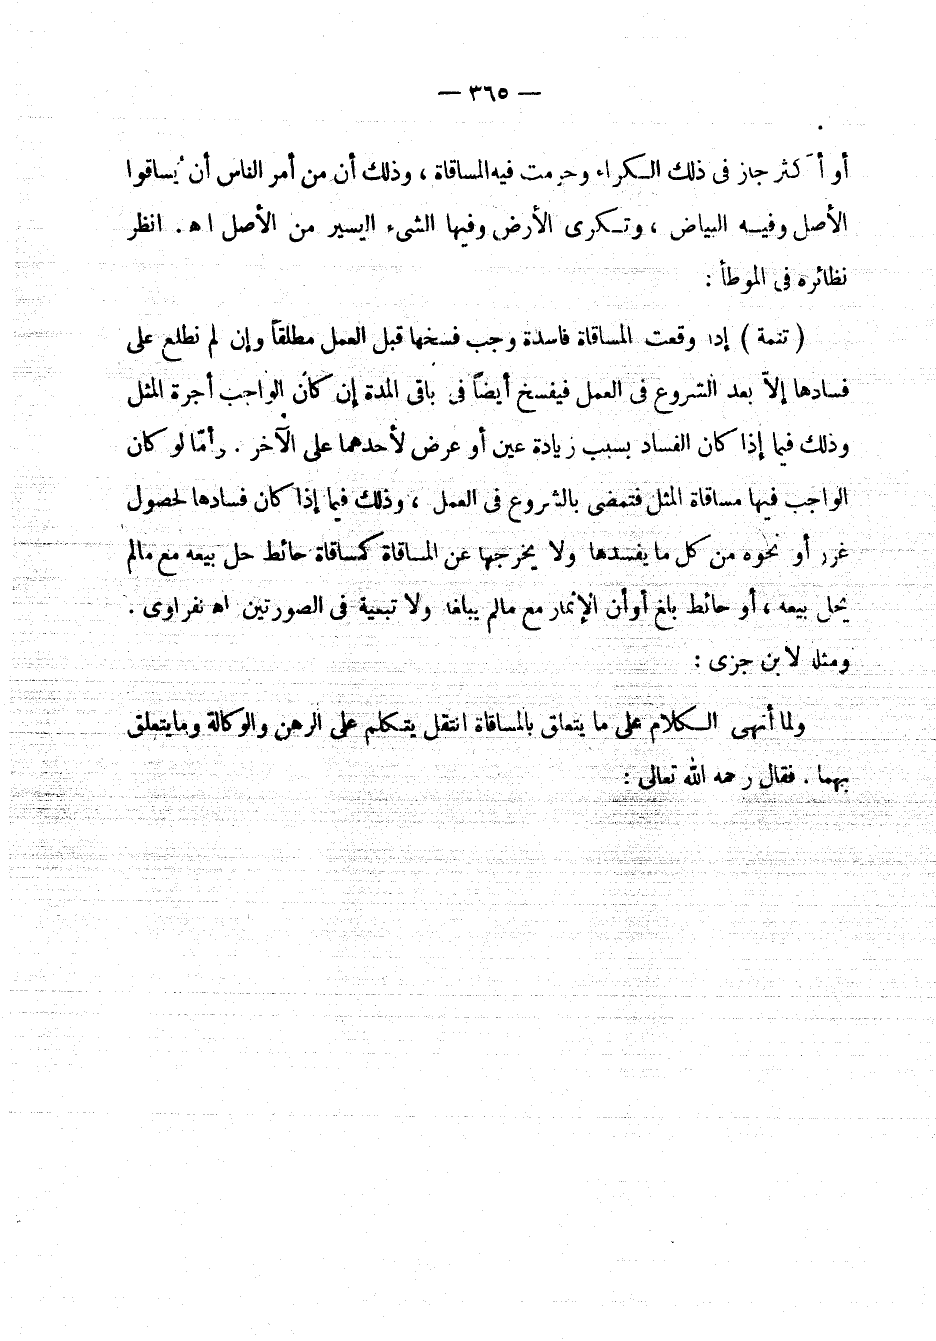 — ٣٦٥ —
أو أكثر جاز فى ذلك الكراء وحرمت فيه المساقاة ، وذلك أن من أمر الناس أن يُساقوا
الأصل وفيه البياض ، وتكرى الأرض وفيها الشىء اليسير من الأصل اه . انظر
نظائره فى الموطأ :
( تتمة ) إذا وقعت المساقاة فاسدة وجب فسخها قبل العمل مطلقاً وإن لم نطلع على
فسادها إلاّ بعد الشروع فى العمل فيفسخ أيضاً فى باقى المدة إن كان الواجب أجرة المثل
وذلك فيما إذا كان الفساد بسبب زيادة عين أو عرض لأحدهما على الآخر . وأمّا لو كان
الواجب فيها مساقاة المثل فتمضى بالشروع فى العمل ، وذلك فيما إذا كان فسادها لحصول
غرر أو نحوه من كل ما يفسدها ولا يخرجها عن المساقاة كمساقاة حائط حل بيعه مع مالم
يحل بيعه ، أو حائط بلغ أوأن الإثمار مع مالم يبلغا ولا تبعية فى الصورتين اه نفراوى .
ومثله لابن جزى :
ولما أنهى الكلام على ما يتعلق بالمساقاة انتقل يتكلم على الرهن والوكالة ومايتعلق
بهما . فقال رحمه الله تعالى :